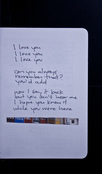 I love you
I love you
I love you
can you always
remember that?
you'd add
now I say it back
but you don't hear me
I hope you knew it
while you were here